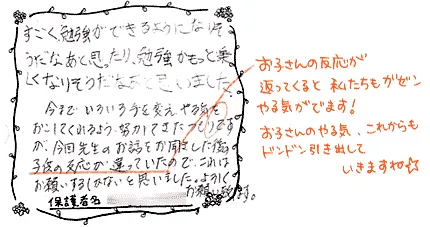 すごく勉強ができるようになりそ
うだなあと思ったり、勉強がもっと楽
しくなりそうだなあと思いました。
今までいろいろ手を変え やる気を
おこしてくれるよう、努力してきたつもりです
が、今回先生のお話をお聞きした後
子供の反応が違っていたので、これは
お願いするしかないと思いました。よろしく
お願い致します。
保護者名
お子さんの反応が
返ってくると 私たちもガゼン
やる気がでます!
お子さんのやる気、これからも
ドンドン引き出して
いきますね☆